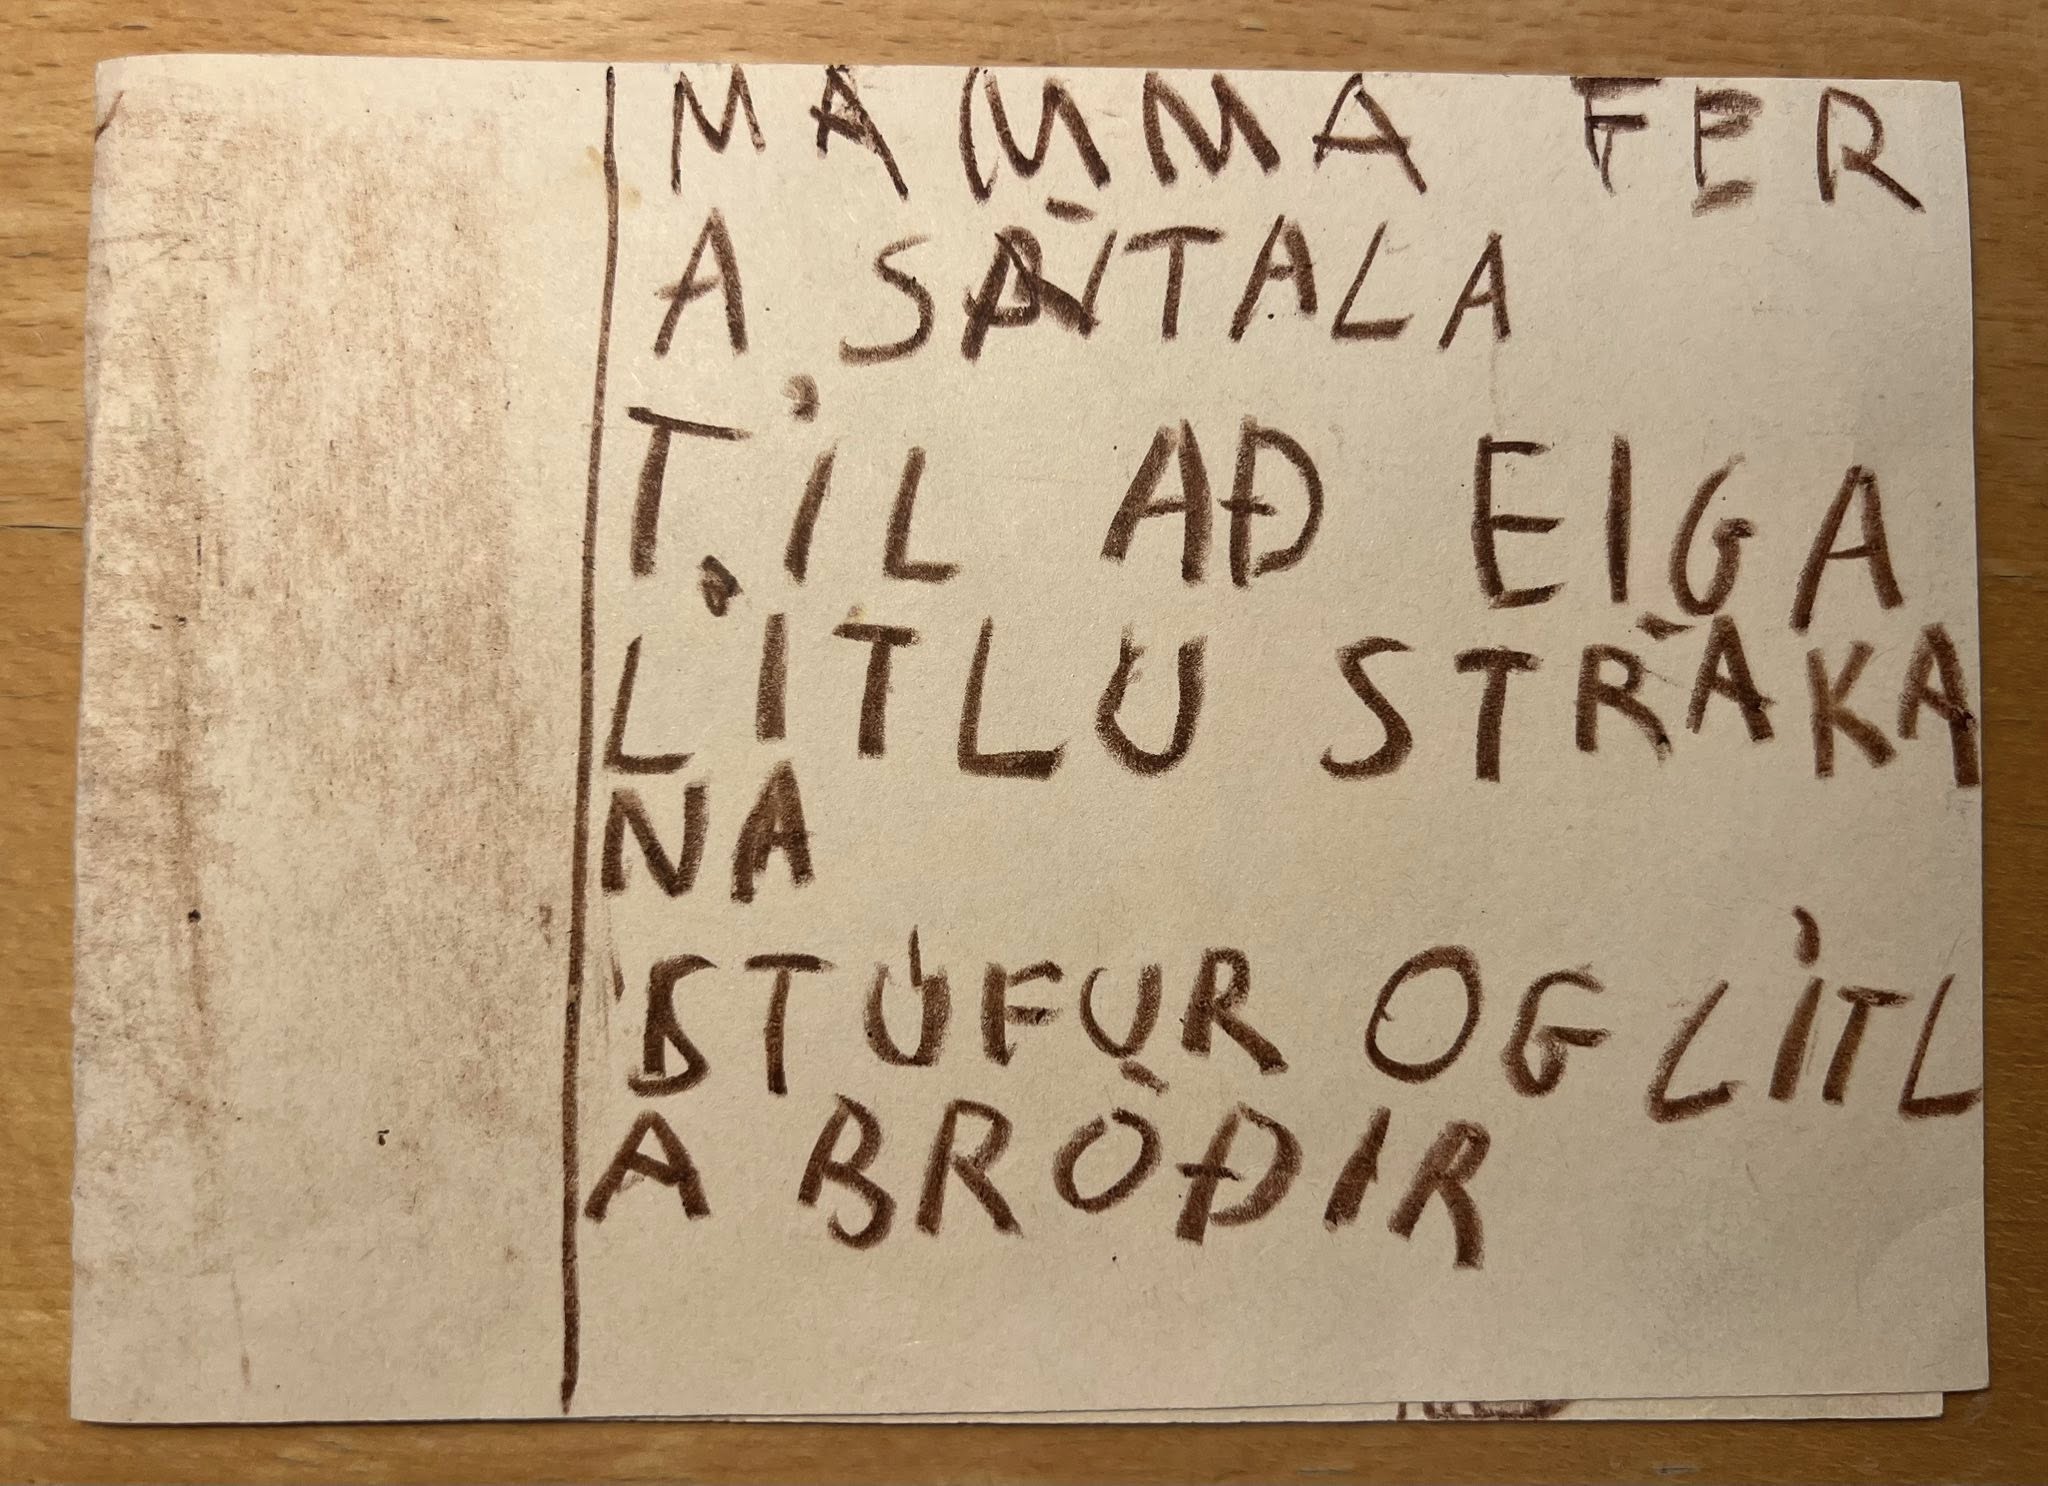 MAMMA FER
A SÁTALA
TIL AÐ EIGA
LITLU STRÁKA
NA
STÚFUR OG LÍTL
A BRÓÐIR